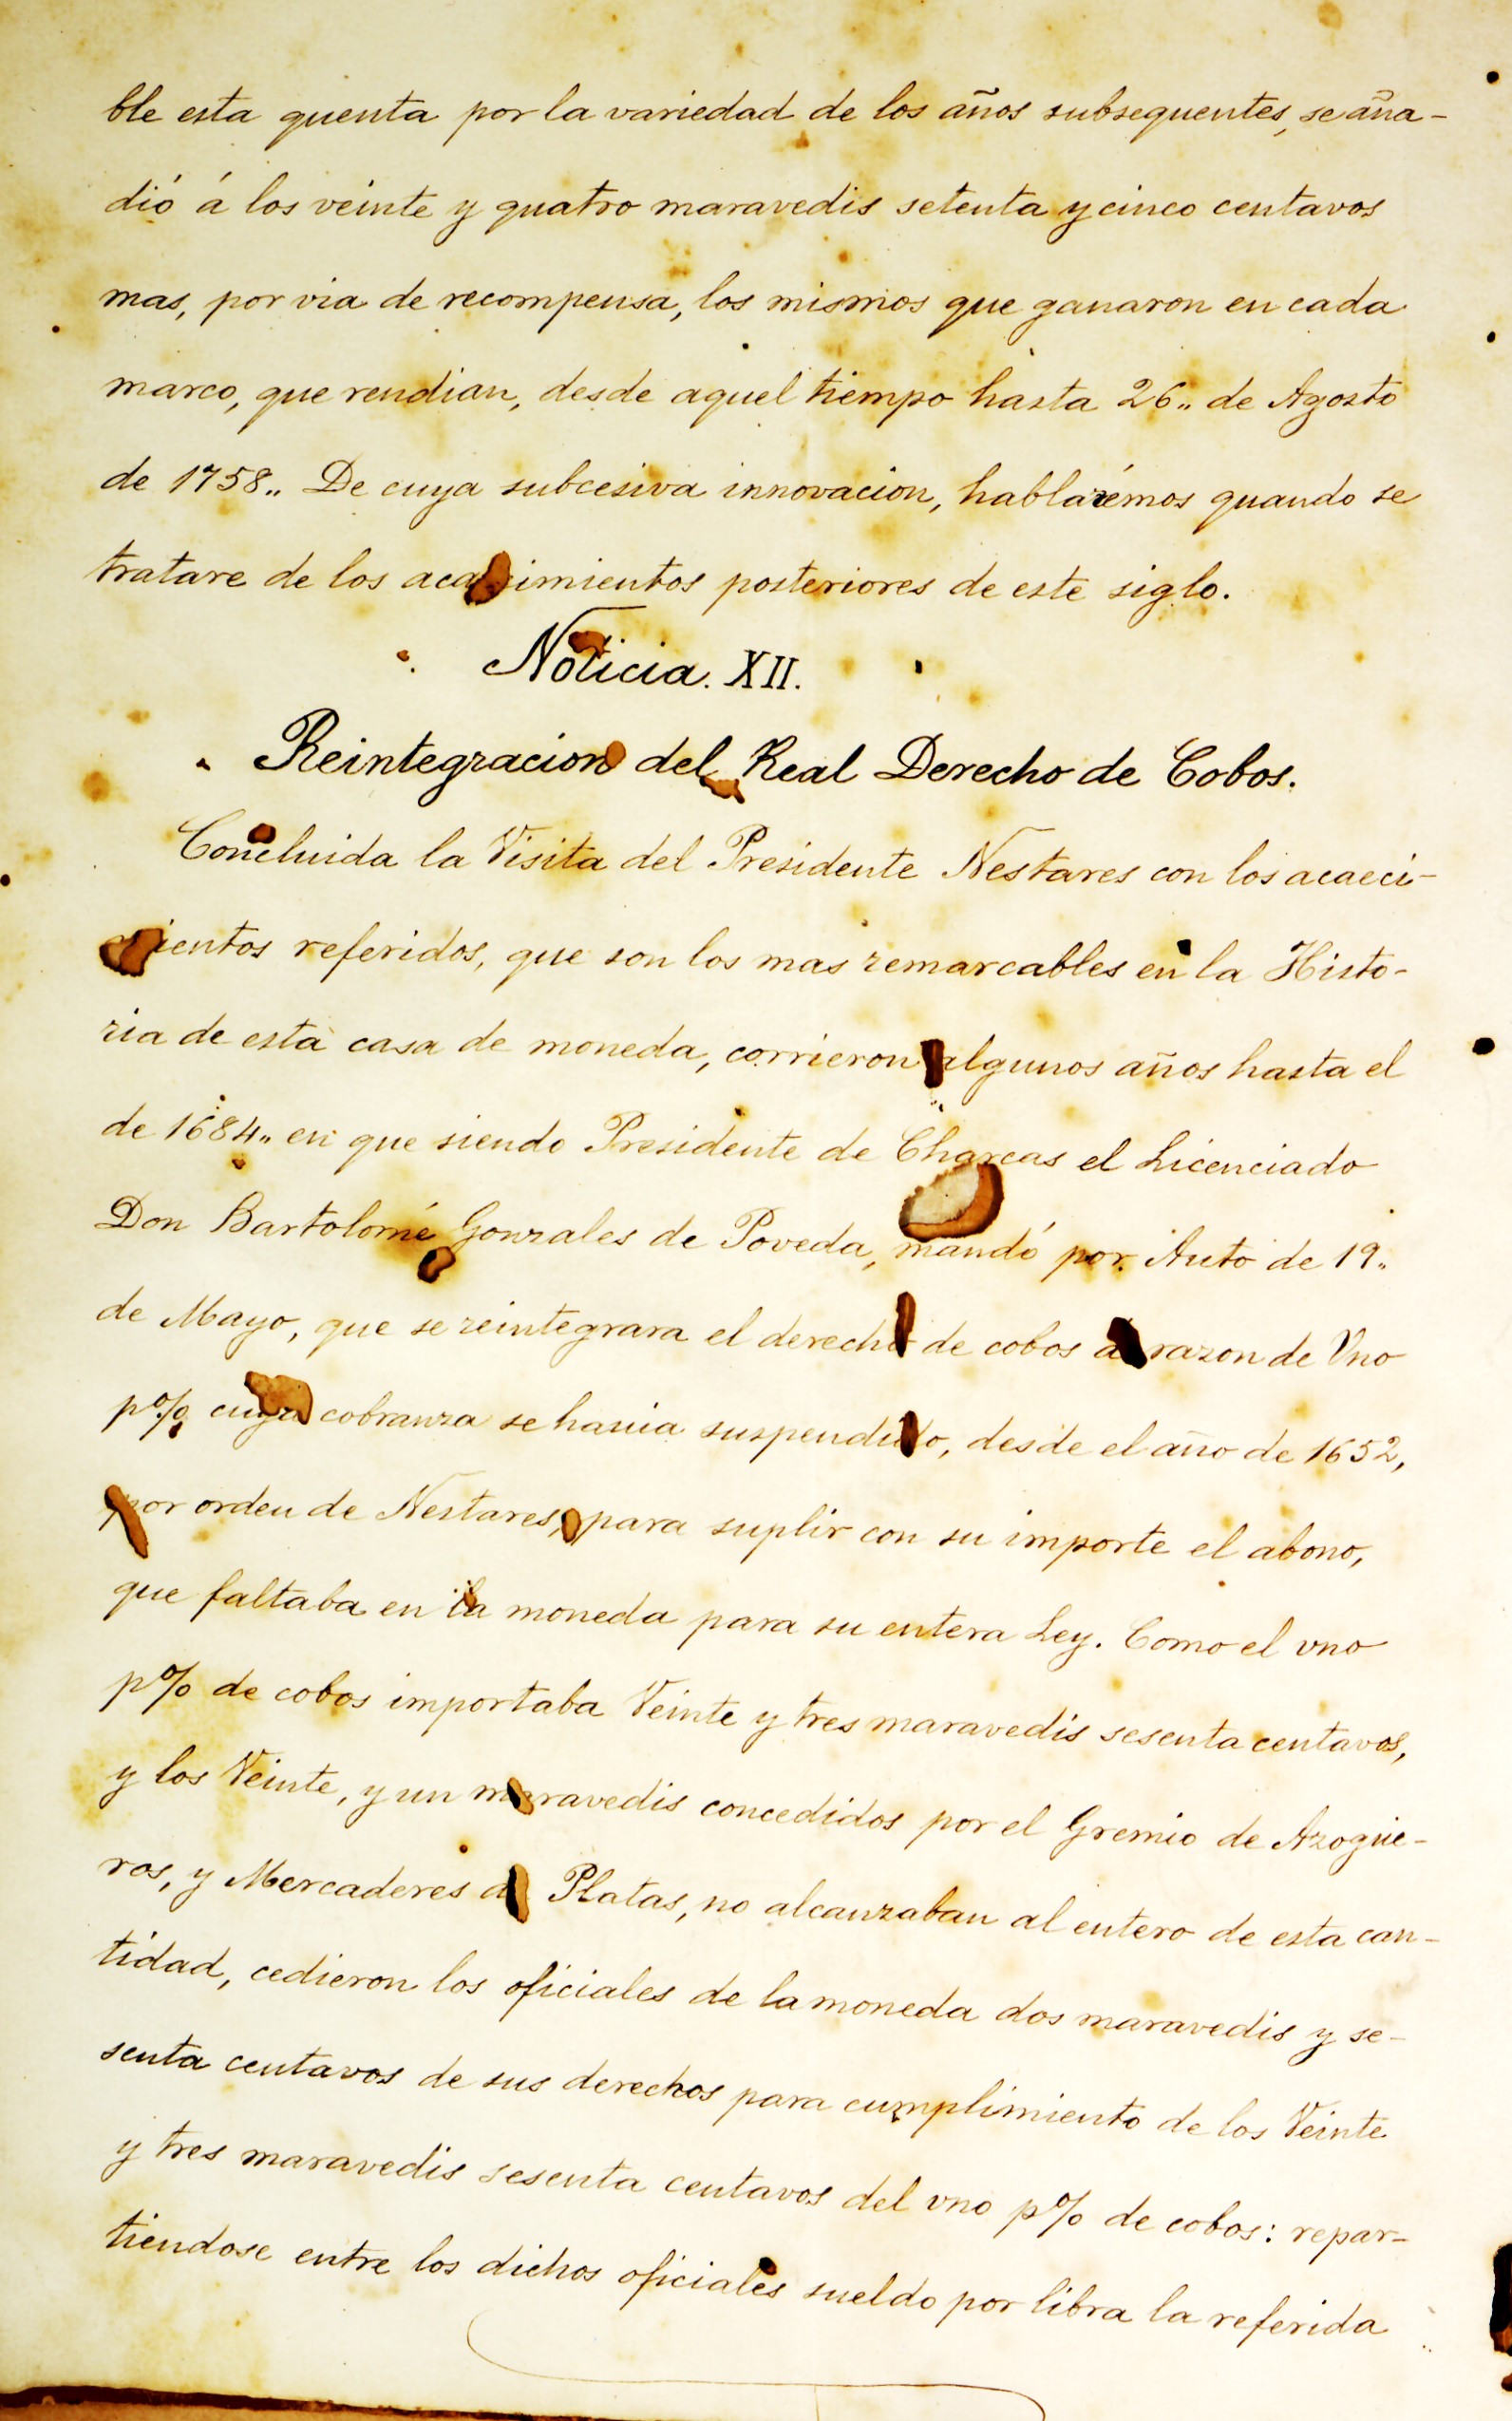 ble esta quenta por la variedad de los años subsequentes, se aña-
dió á los veinte y quatro maravedis setenta y cinco centavos
mas, por via de recompensa, los mismos que ganaron en cada
marco, que rendian, desde aquel tiempo hasta 26,, de Agosto
de 1758,, De cuya subcesiva innovacion, hablarémos quando se
tratare de los acaecimientos posteriores de este siglo.
Noticia. XII.
Reintegracion del Real Derecho de Cobos.
Concluida la Visita del Presidente Nestares con los acaeci-
mientos referidos, que son los mas remarcables en la Histo-
ria de esta casa de moneda, corrieron algunos años hasta el
de 1684,, en que siendo Presidente de Charcas el Licenciado
Don Bartolomé Gonzales de Poveda, mandó por Auto de 19,,
de Mayo, que se reintegrara el derecho de cobos á razon de Vno
p% cuya cobranza se havia suspendido, desde el año de 1652,
por orden de Nestares, para suplir con su importe el abono,
que faltaba en la moneda para su entera Ley. Como el vno
p% de cobos importaba Veinte y tres maravedis sesenta centavos,
y los Veinte, y un maravedis concedidos por el Gremio de Azogue-
ros, y Mercaderes de Platas, no alcanzaban al entero de esta can-
tidad, cedieron los oficiales de la moneda dos maravedis y se-
senta centavos de sus derechos para cumplimiento de los Veinte
y tres maravedis sesenta centavos del vno p% de cobos: repar-
tiendose entre los dichos oficiales sueldo por libra la referida